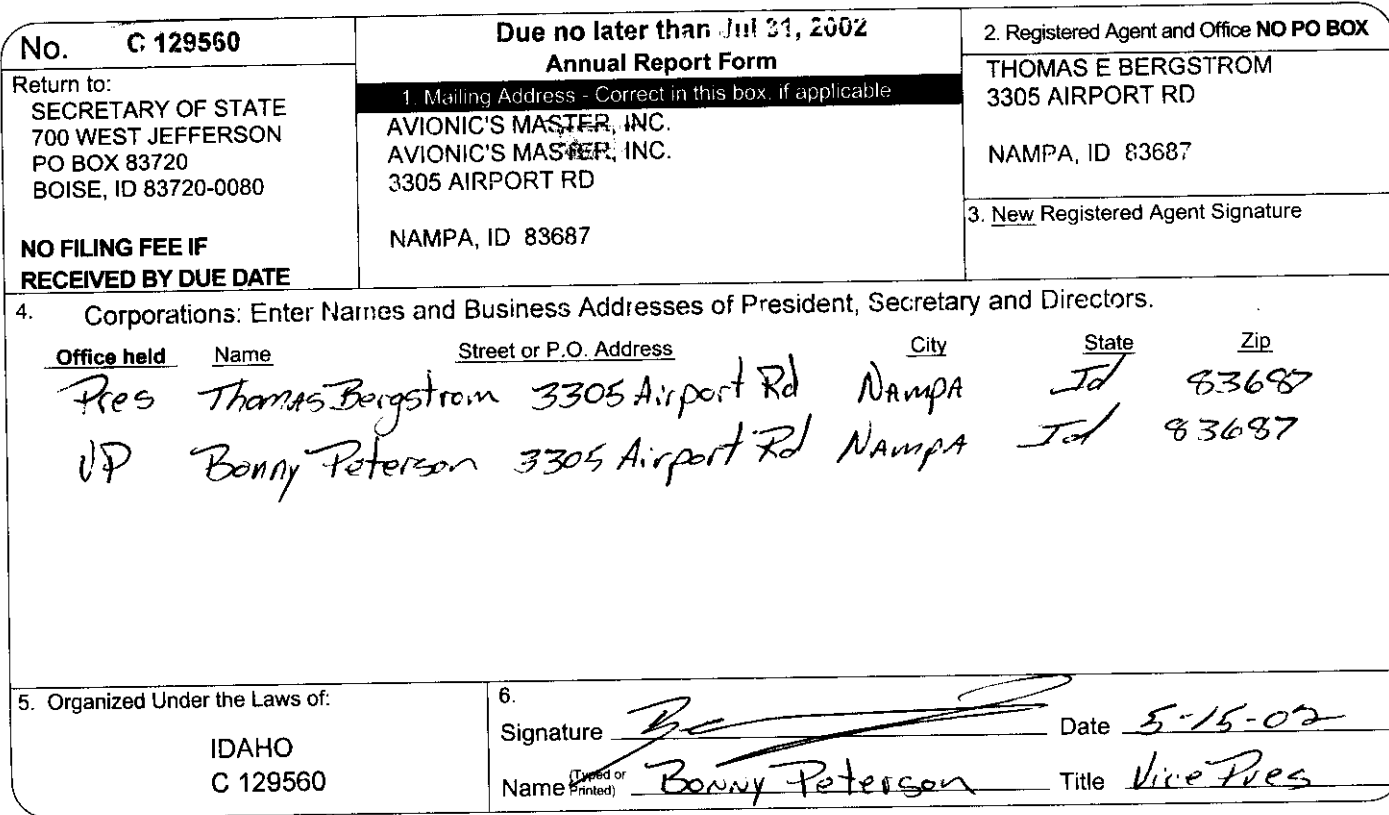 No. C 129560
Return to:
SECRETARY OF STATE
700 WEST JEFFERSON
PO BOX 83720
BOISE, ID 83720-0080
NO FILING FEE IF
RECEIVED BY DUE DATE
Due no later than Jul 31, 2002
Annual Report Form
1. Mailing Address - Correct in this box, if applicable
AVIONIC'S MASTER, INC.
AVIONIC'S MASTER, INC.
3305 AIRPORT RD
NAMPA, ID 83687
2. Registered Agent and Office NO PO BOX
THOMAS E BERGSTROM
3305 AIRPORT RD
NAMPA, ID 83687
3. New Registered Agent Signature
4. Corporations: Enter Names and Business Addresses of President, Secretary and Directors.
Office held Name Street or P.O. Address City State Zip
Pres Thomas Bergstrom 3305 Airport Rd Nampa Id 83687
VP Bonny Peterson 3305 Airport Rd Nampa Id 83687
5. Organized Under the Laws of:
IDAHO
C 129560
6.
Signature Date 5-15-02
Name (Typed or Printed) Bonny Peterson Title Vice Pres